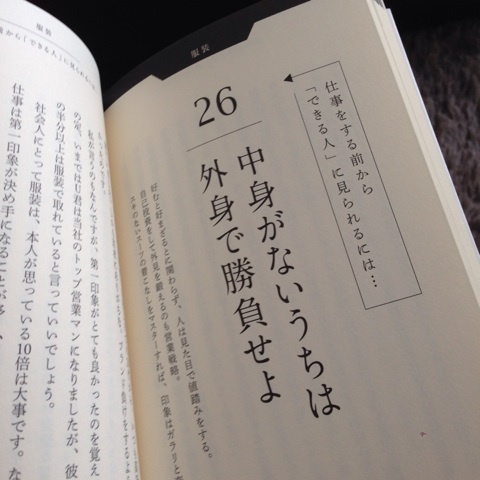 服装
仕事をする前から
「できる人」に見られるには…
26
中身がないうちは
外身で勝負せよ
好むと好まざるとに関わらず、人は見た目で値踏みをする。
自己投資をして外見を鍛えるのも営業戦略。
スキのないスーツの着こなしをマスターすれば、印象はガラリと
服装
から「できる人」に見られるには
ブランド負けをするよ
私が言うのもなんですが、第一印象がとても良かったのを覚え
の定、いまではU君は当社のトップ営業マンになりましたが、彼
の半分以上は服装で取れていると言っていいでしょう。
社会人にとって服装は、本人が思っている10倍は大事です。な
仕事は第一印象が決め手になることが多